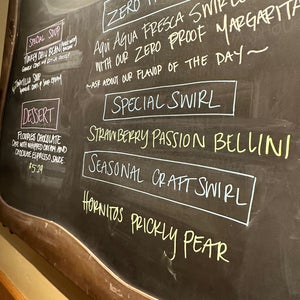 SPECIAL SOUP
TORTILLA SOUP
DESSERT
FLOURLESS CHOCOLATE
CAKE WITH WHIPPED CREAM AND
CHOCOLATE ESPRESSO SAUCE
ZERO
AQUI AGUA FRESCA SWIRL
WITH OUR ZERO PROOF MARGARITA
~ASK ABOUT OUR FLAVOR OF THE DAY~
SPECIAL SWIRL
STRAWBERRY PASSION BELLINI
SEASONAL CRAFT SWIRL
HORNITOS PRICKLY PEAR